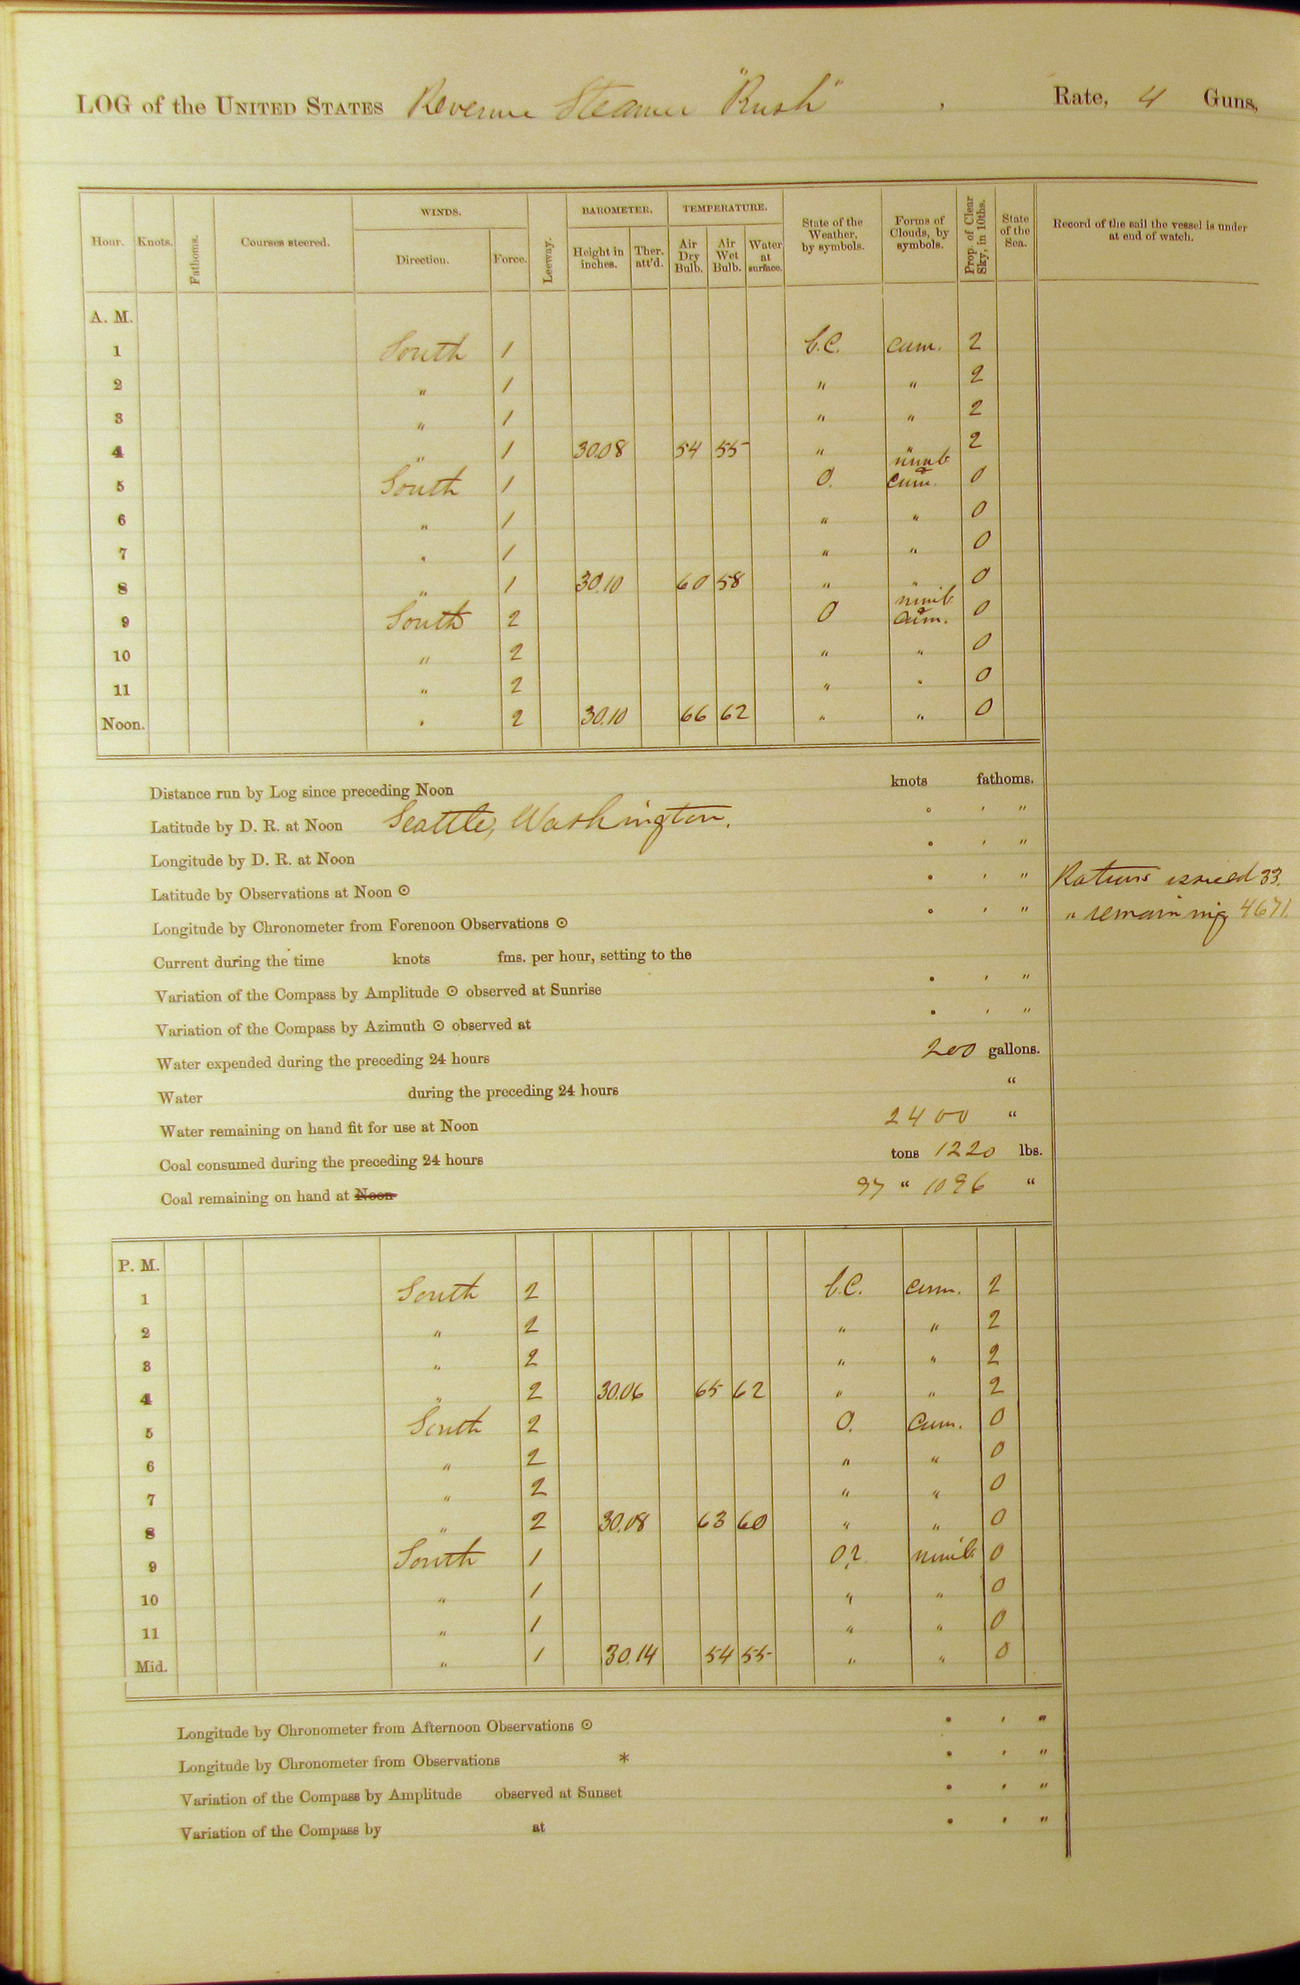 LOG of the UNITED STATES Revenue Steamer "Rush", Rate, 4 Guns,
Hour. Knots. Fathoms. Courses steered. WINDS. Direction. Force. Leeway. BAROMETER. Height in inches. Ther. att'd. TEMPERATURE. Air Dry Bulb. Air Wet Bulb. Water at surface. State of the Weather, by symbols. Forms of Clouds, by symbols. Prop. of Clear Sky, in 10ths. State of the Sea. Record of the sail the vessel is under at end of watch.
A. M.
1 South 1 b.c. cum. 2
2 " 1 " " 2
3 " 1 " " 2
4 " 1 30.08 54 55 " " 2
5 South 1 O. nimb cum. 0
6 " 1 " " 0
7 " 1 " " 0
8 " 1 30.10 60 58 " " 0
9 South 2 O nimb cum. 0
10 " 2 " " 0
11 " 2 " " 0
Noon. " 2 30.10 66 62 " " 0
Distance run by Log since preceding Noon knots fathoms.
Latitude by D. R. at Noon Seattle, Washington. ° ' "
Longitude by D. R. at Noon ° ' "
Latitude by Observations at Noon ⊙ ° ' " Rations issued 33.
Longitude by Chronometer from Forenoon Observations ⊙ ° ' " " remaining 4671
Current during the time knots fms. per hour, setting to the
Variation of the Compass by Amplitude ⊙ observed at Sunrise ° ' "
Variation of the Compass by Azimuth ⊙ observed at ° ' "
Water expended during the preceding 24 hours 200 gallons.
Water during the preceding 24 hours "
Water remaining on hand fit for use at Noon 2400 "
Coal consumed during the preceding 24 hours tons 1220 lbs.
Coal remaining on hand at Noon 37 " 1096 "
P. M.
1 South 2 b.c. cum. 2
2 " 2 " " 2
3 " 2 " " 2
4 " 2 30.06 65 62 " " 2
5 South 2 O. Cum. 0
6 " 2 " " 0
7 " 2 " " 0
8 " 2 30.08 63 60 " " 0
9 South 1 O.r. nimb 0
10 " 1 " " 0
11 " 1 " " 0
Mid. " 1 30.14 54 55 " " 0
Longitude by Chronometer from Afternoon Observations ⊙ ° ' "
Longitude by Chronometer from Observations * ° ' "
Variation of the Compass by Amplitude observed at Sunset ° ' "
Variation of the Compass by at ° ' "